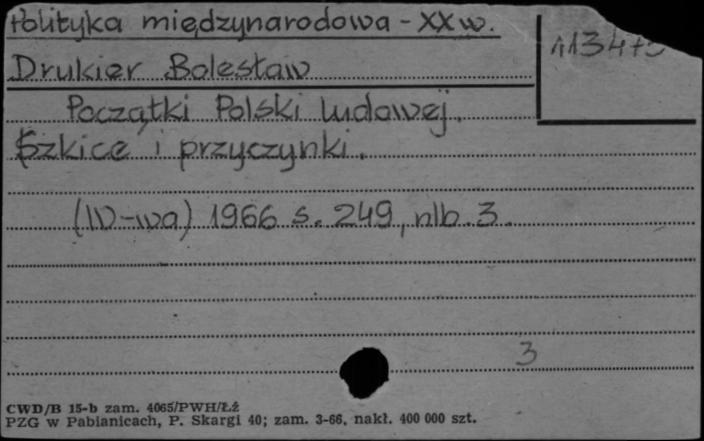 Polityka międzynarodowa - XX w.
Drukier Bolesław
Początki Polski ludowej.
Szkice i przyczynki.
(W-wa) 1966 s. 249, nlb. 3.
3
CWD/B 15-b zam. 4065/PWH/Łź
PZG w Pabianicach, P. Skargi 40; zam. 3-66, nakł. 400 000 szt.